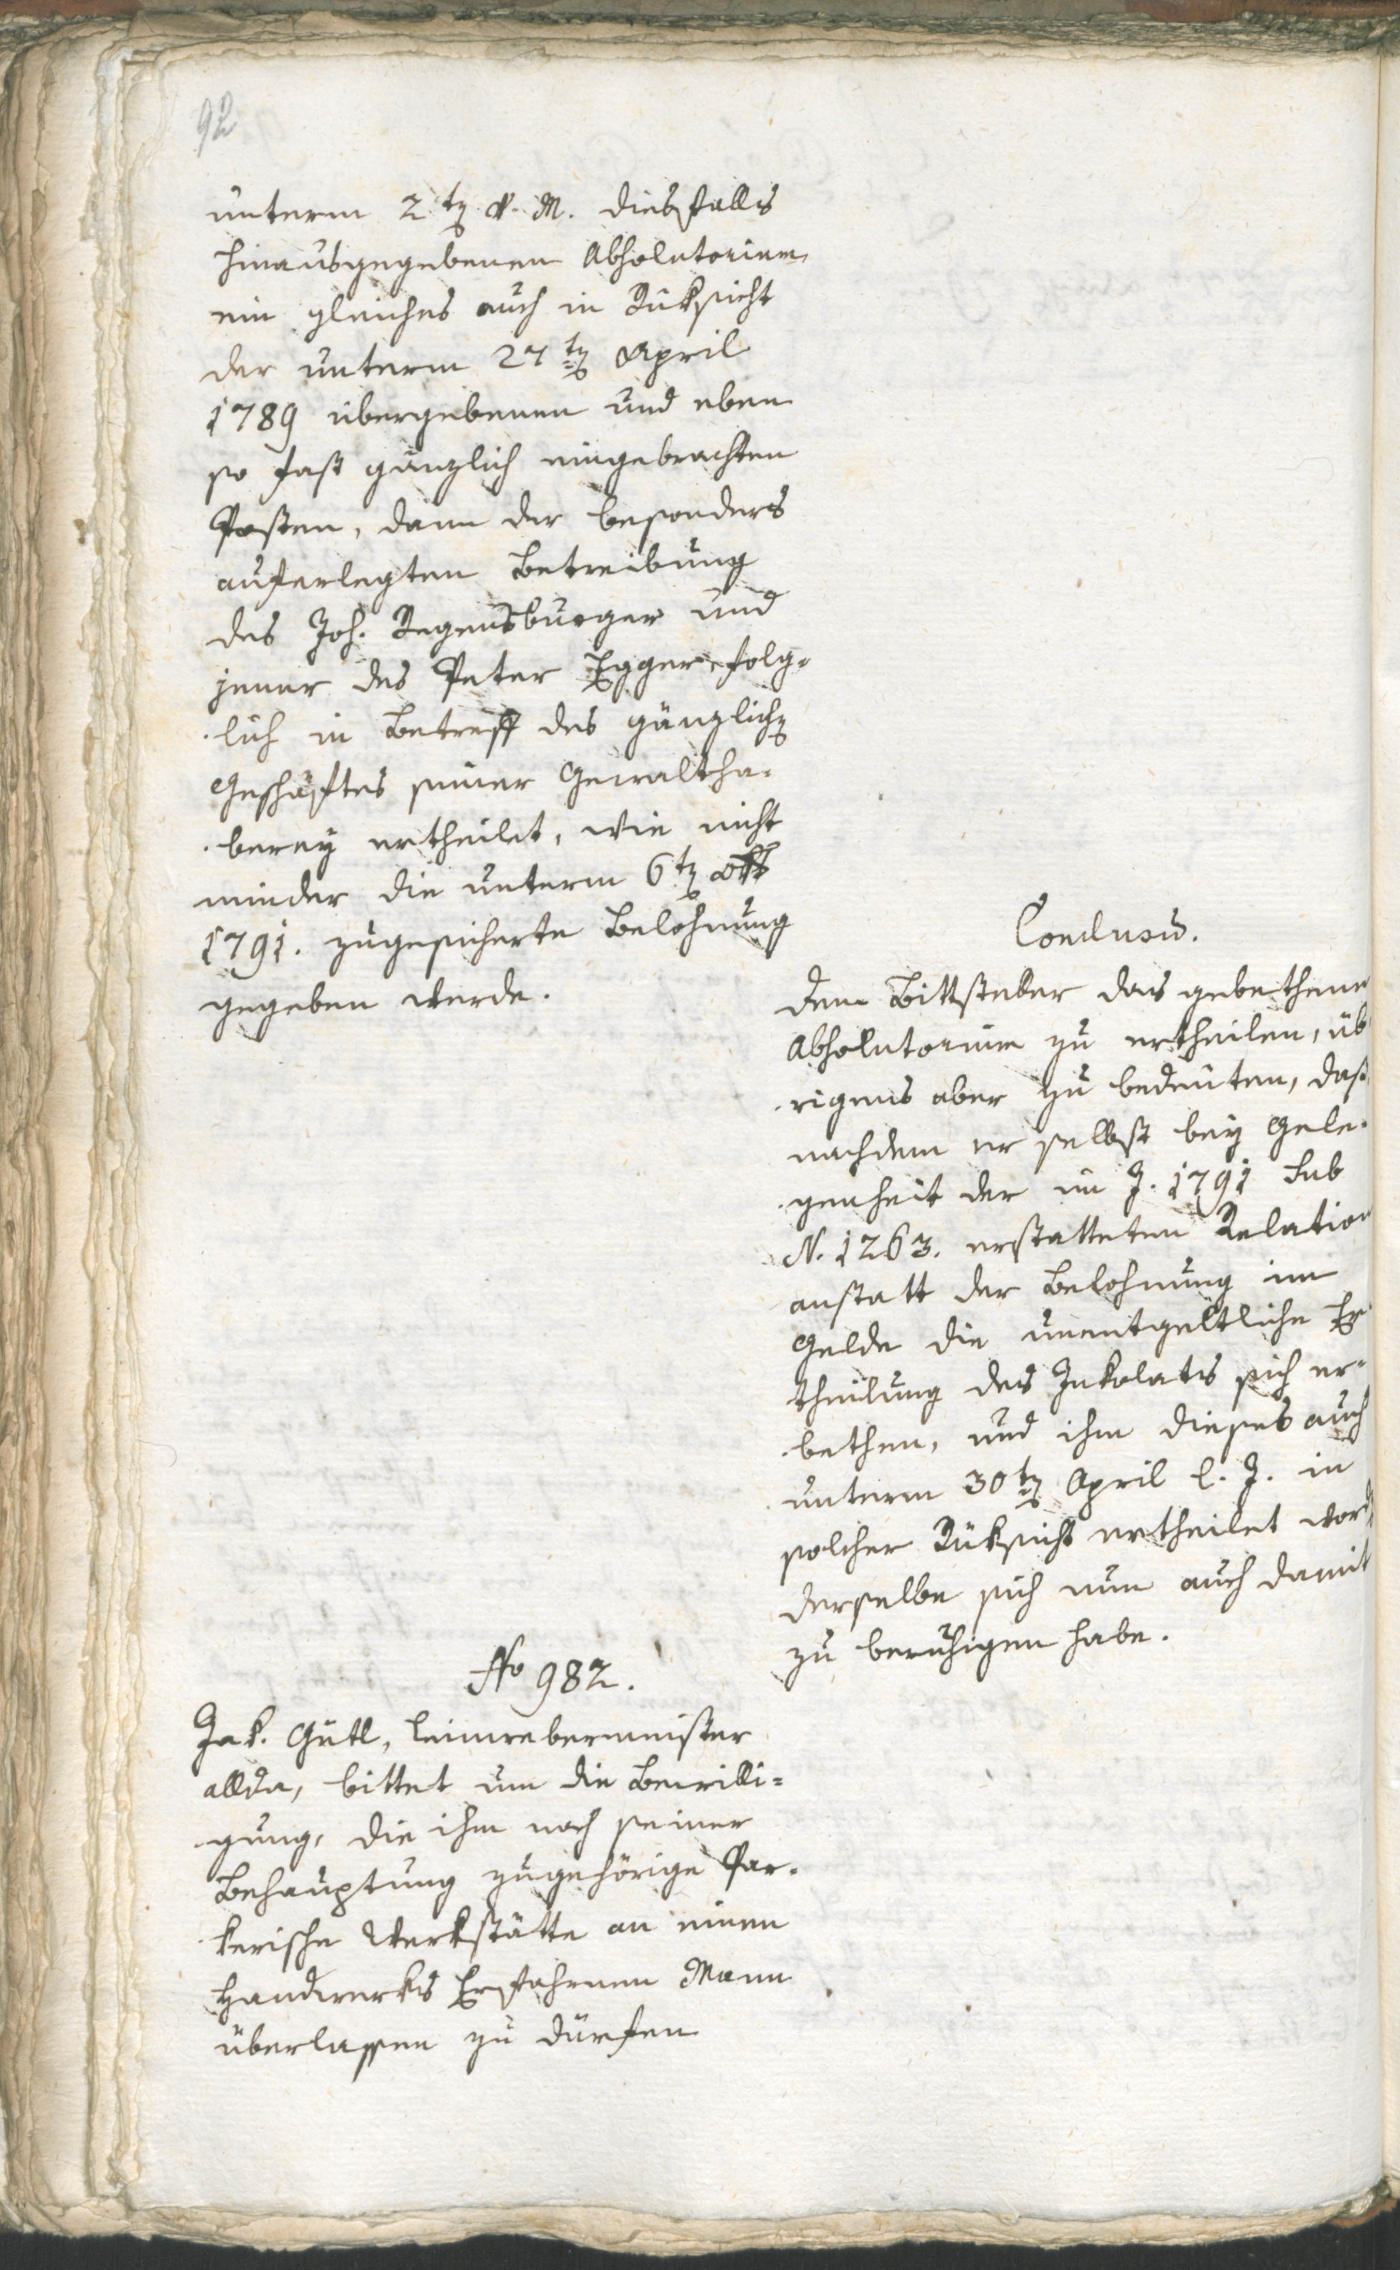 92
unterm 2t﻿en v. M. diesfalls
hinausgegebenen Absolutorium
ein gleiches auch in Rüksicht
der unterm 27ten April
1789 übergebenen und eben
so fast gänzlich eingebrachten
Posten, dann der besonders
auferlegten Betreibung
des Joh. Regensburger und
jener des Peter Egger, folg-
lich in Betreff des gänzlichen
Geschäftes seiner Gewaltha-
berey ertheilet, wie nicht
minder die unterm 6ten
1791. zugesicherte Belohnung
gegeben werde.
Conclusu.
Dem Bittsteller das gebethene
Absolutorium zu ertheilen, üb
rigens aber zu bedeuten, daß
nachdem er selbst bey Gele-
genheit der im J. 1791 sub
N. 1263. erstatteten Relation
anstatt der Belohnung im
Gelde die unentgeltliche Er
theilung des Inkolats sich er-
bethen, und ihm dieses auch
unterm 30ten April l. J. in
solcher Rüksicht ertheilet word
derselbe sich nun auch damit
zu beruhigen habe.
No 982.
Jak. Gütl, Leinwebermeister
allda, bittet um die Bewilli-
gung, die ihm nach seiner
Behauptung zugehörige Par-
kerische Werkstätte an einen
Handwerks Erfahrnen Mann
überlassen zu dürfen